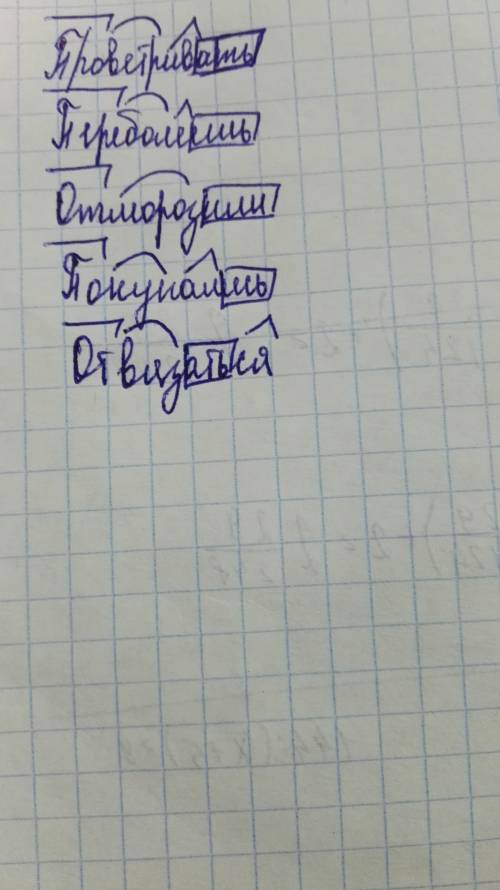 Проветривать
Переболеешь
Отморозили
Покупались
Отвязаться